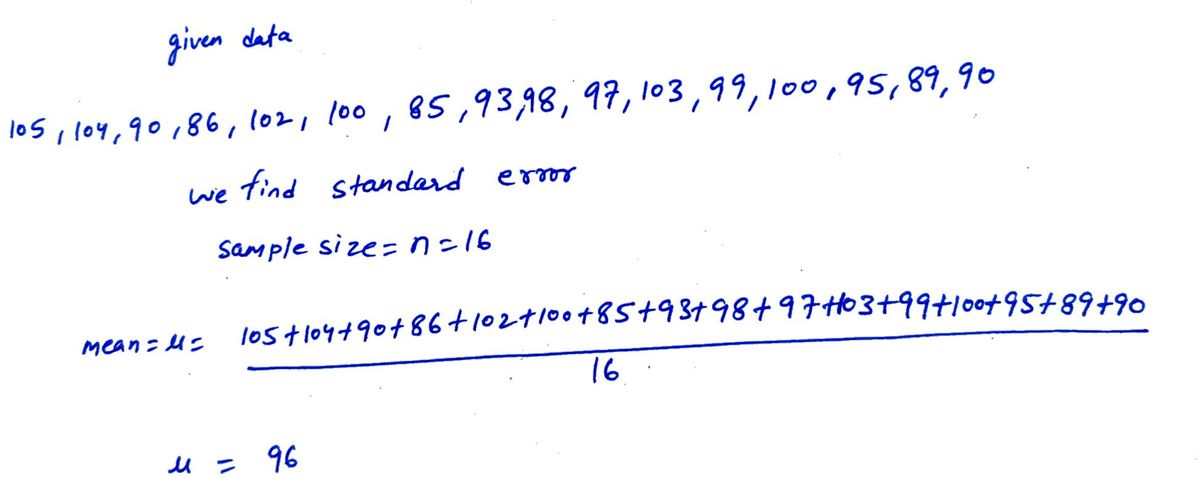 given data
105, 104, 90, 86, 102, 100, 85, 93, 98, 97, 103, 99, 100, 95, 89, 90
we find standard error
sample size = n = 16
mean = μ = 105+104+90+86+102+100+85+93+98+97+103+99+100+95+89+90
16
μ = 96